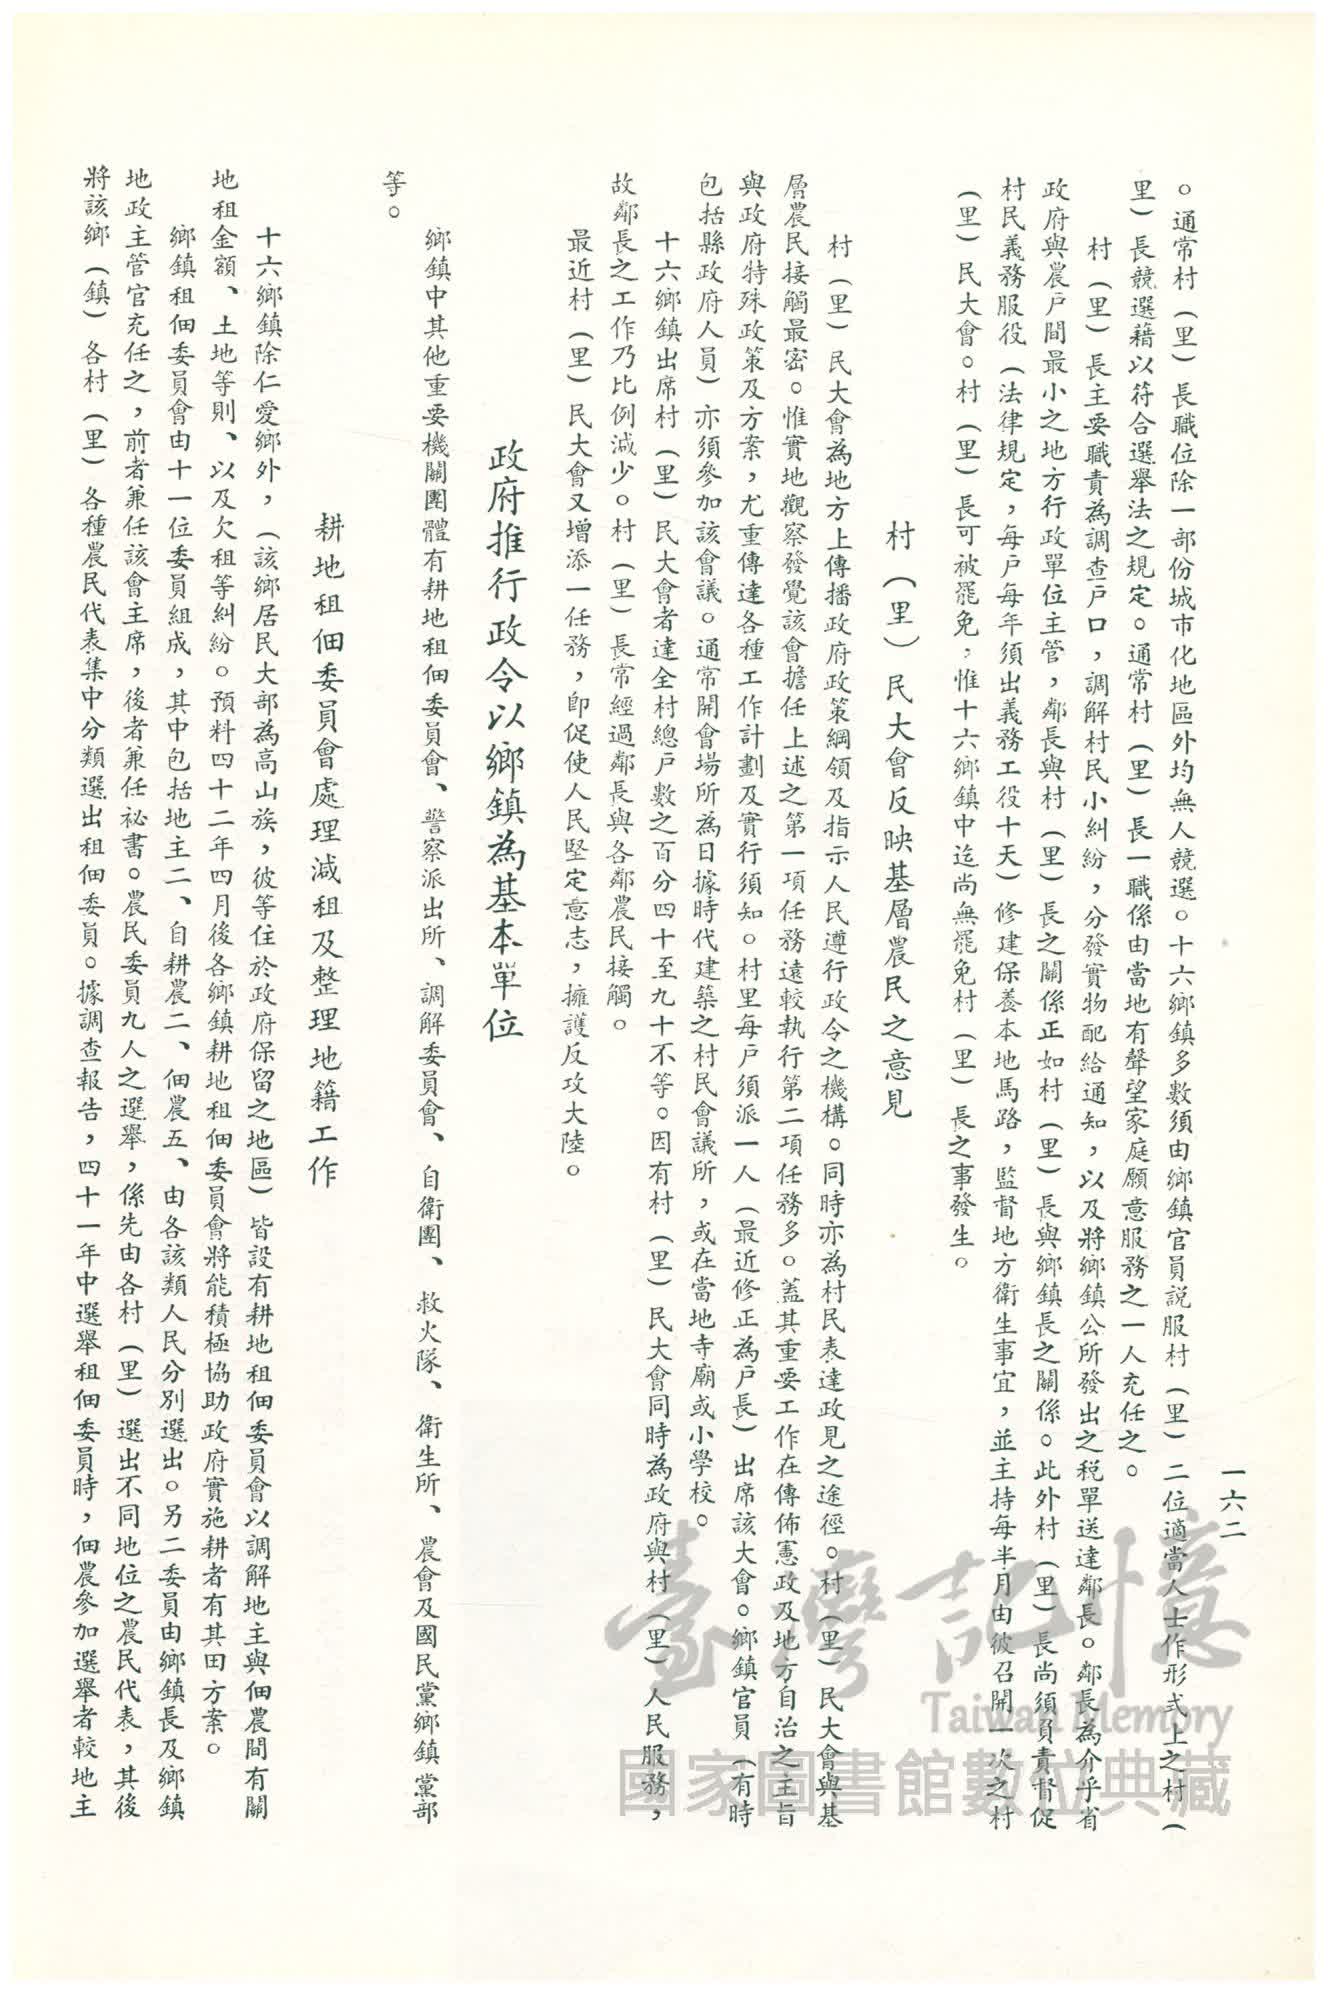 一六二
。通常村(里)長職位除一部份城市化地區外均無人競選。十六鄉鎮多數須由鄉鎮官員説服村(里)二位適當人士作形式上之村(
里)長競選藉以符合選舉法之規定。通常村(里)長一職係由當地有聲望家庭願意服務之一人充任之。
村(里)長主要職責為調查戶口,調解村民小糾紛,分發實物配給通知,以及將鄉鎮公所發出之税單送達鄰長。鄰長為介乎省
政府與農戶間最小之地方行政單位主管,鄰長與村(里)長之關係正如村(里)長與鄉鎮長之關係。此外村(里)長尚須負責督促
村民義務服役(法律規定,每戶每年須出義務工役十天)修建保養本地馬路,監督地方衛生事宜,並主持每半月由彼召開一次之村
(里)民大會。村(里)長可被罷免,惟十六鄉鎮中迄尚無罷免村(里)長之事發生。
村(里)民大會反映基層農民之意見
村(里)民大會為地方上傳播政府政策綱領及指示人民遵行政令之機構。同時亦為村民表達政見之途徑。村(里)民大會與基
層農民接觸最密。惟實地觀察發覺該會擔任上述之第一項任務遠較執行第二項任務多。蓋其重要工作在傳佈憲政及地方自治之主旨
與政府特殊政策及方案,尤重傳達各種工作計劃及實行須知。村里每戶須派一人(最近修正為戶長)出席該大會。鄉鎮官員(有時
包括縣政府人員)亦須參加該會議。通常開會場所為日據時代建築之村民會議所,或在當地寺廟或小學校。
十六鄉鎮出席村(里)民大會者達全村總戶數之百分四十至九十不等。因有村(里)民大會同時為政府與村(里)人民服務,
故鄰長之工作乃比例減少。村(里)長常經過鄰長與各鄰農民接觸。
最近村(里)民大會又增添一任務,即促使人民堅定意志,擁護反攻大陸。
政府推行政令以鄉鎮為基本單位
鄉鎮中其他重要機關團體有耕地租佃委員會、警察派出所、調解委員會、自衛團、救火隊、衛生所、農會及國民黨鄉鎮黨部
等。
耕地租佃委員會處理減租及整理地籍工作
十六鄉鎮除仁愛鄉外,(該鄉居民大部為高山族,彼等住於政府保留之地區)皆設有耕地租佃委員會以調解地主與佃農間有關
地租金額、土地等則、以及欠租等糾紛。預料四十二年四月後各鄉鎮耕地租佃委員會將能積極協助政府實施耕者有其田方案。
鄉鎮租佃委員會由十一位委員組成,其中包括地主二、自耕農二、佃農五、由各該類人民分別選出。另二委員由鄉鎮長及鄉鎮
地政主管官充任之,前者兼任該會主席,後者兼任祕書。農民委員九人之選舉,係先由各村(里)選出不同地位之農民代表,其後
將該鄉(鎮)各村(里)各種農民代表集中分類選出租佃委員。據調查報告,四十一年中選舉租佃委員時,佃農參加選舉者較地主
臺灣記憶
Taiwan Memory
國家圖書館數位典藏